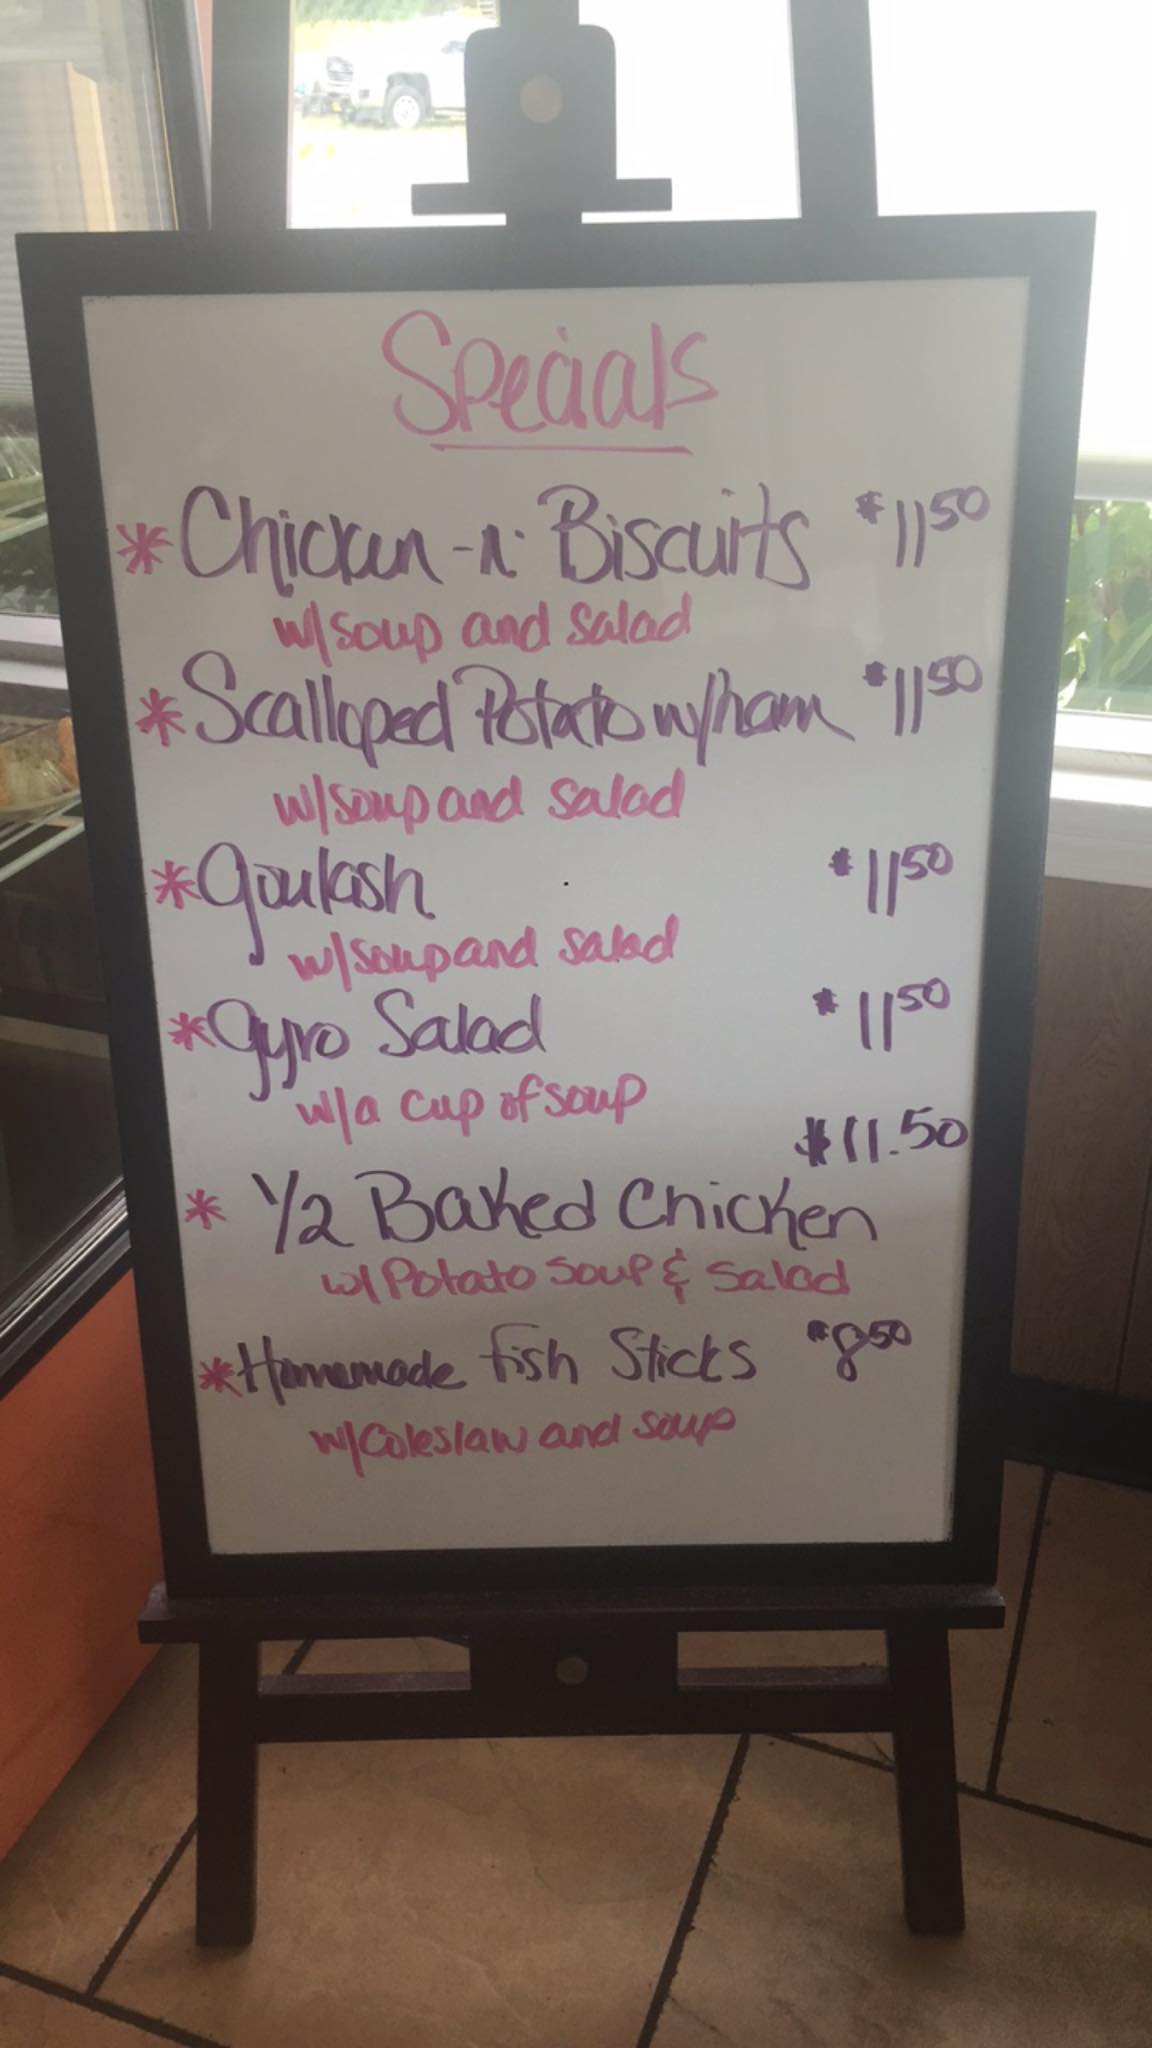 Specials
* Chicken -n- Biscuits $11 50
w/soup and salad
* Scalloped Potato w/ham $11 50
w/soup and salad
* Goulash $11 50
w/soup and salad
* Gyro Salad $11 50
w/a cup of soup
$11.50
* 1/2 Baked Chicken
w/ Potato Soup & Salad
* Homemade fish Sticks $8 50
w/Coleslaw and soup